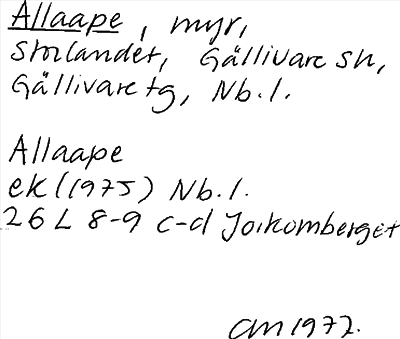 Allaape, myr,
Storlandet, Gällivare sn,
Gällivare tg, Nb.l.
Allaape
ek (1975) Nb.l.
26 L 8-9 c-d Joikomberget
CM 1977.